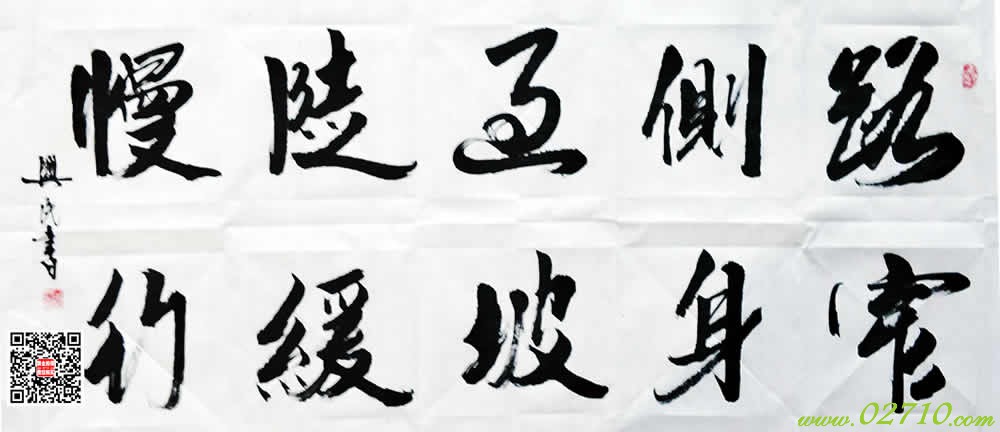 路窄
側身
過坡
陡緩
慢行
興民書
www.02710.com